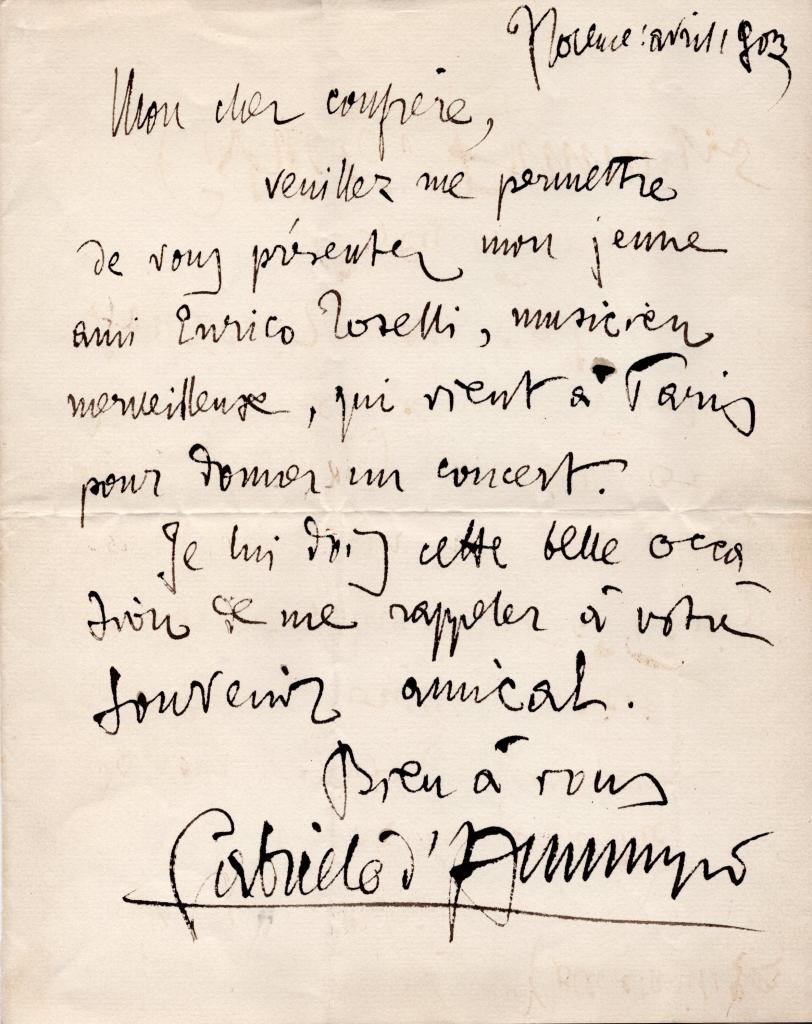 Florence: avril 1903
Mon cher confrère,
veuillez me permettre
de vous présenter mon jeune
ami Enrico Toselli, musicien
merveilleux, qui vient à Paris
pour donner un concert.
Je lui dois cette belle occa
sion de me rappeler à votre
souvenir amical.
Bien à vous
Gabriele d'Annunzio